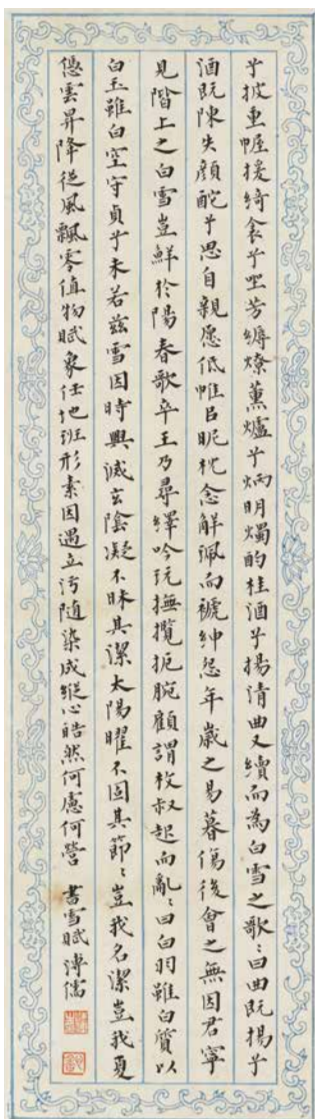 兮披重幄援綺衾兮坐芳縟燎薰爐兮炳明燭酌桂酒兮揚清曲又續而為白雪之歌〻曰曲既揚兮
酒既陳朱顏酡兮思自親愿低帷㠯昵枕念解珮而褫紳怨年歲之易暮傷後會之無因君寧
見階上之白雪豈鮮於陽春歌卒王乃尋繹吟玩撫攬扼腕顧謂枚叔起而亂〻曰白羽雖白質以
白玉雖白空守貞兮未若茲雪因時興滅玄陰凝不昧其潔太陽曜不固其節〻豈我名潔豈我貞
憑雲昇降從風飄零值物賦象任地班形素因遇立污隨染成縱心皓然何慮何營 書雪賦溥儒